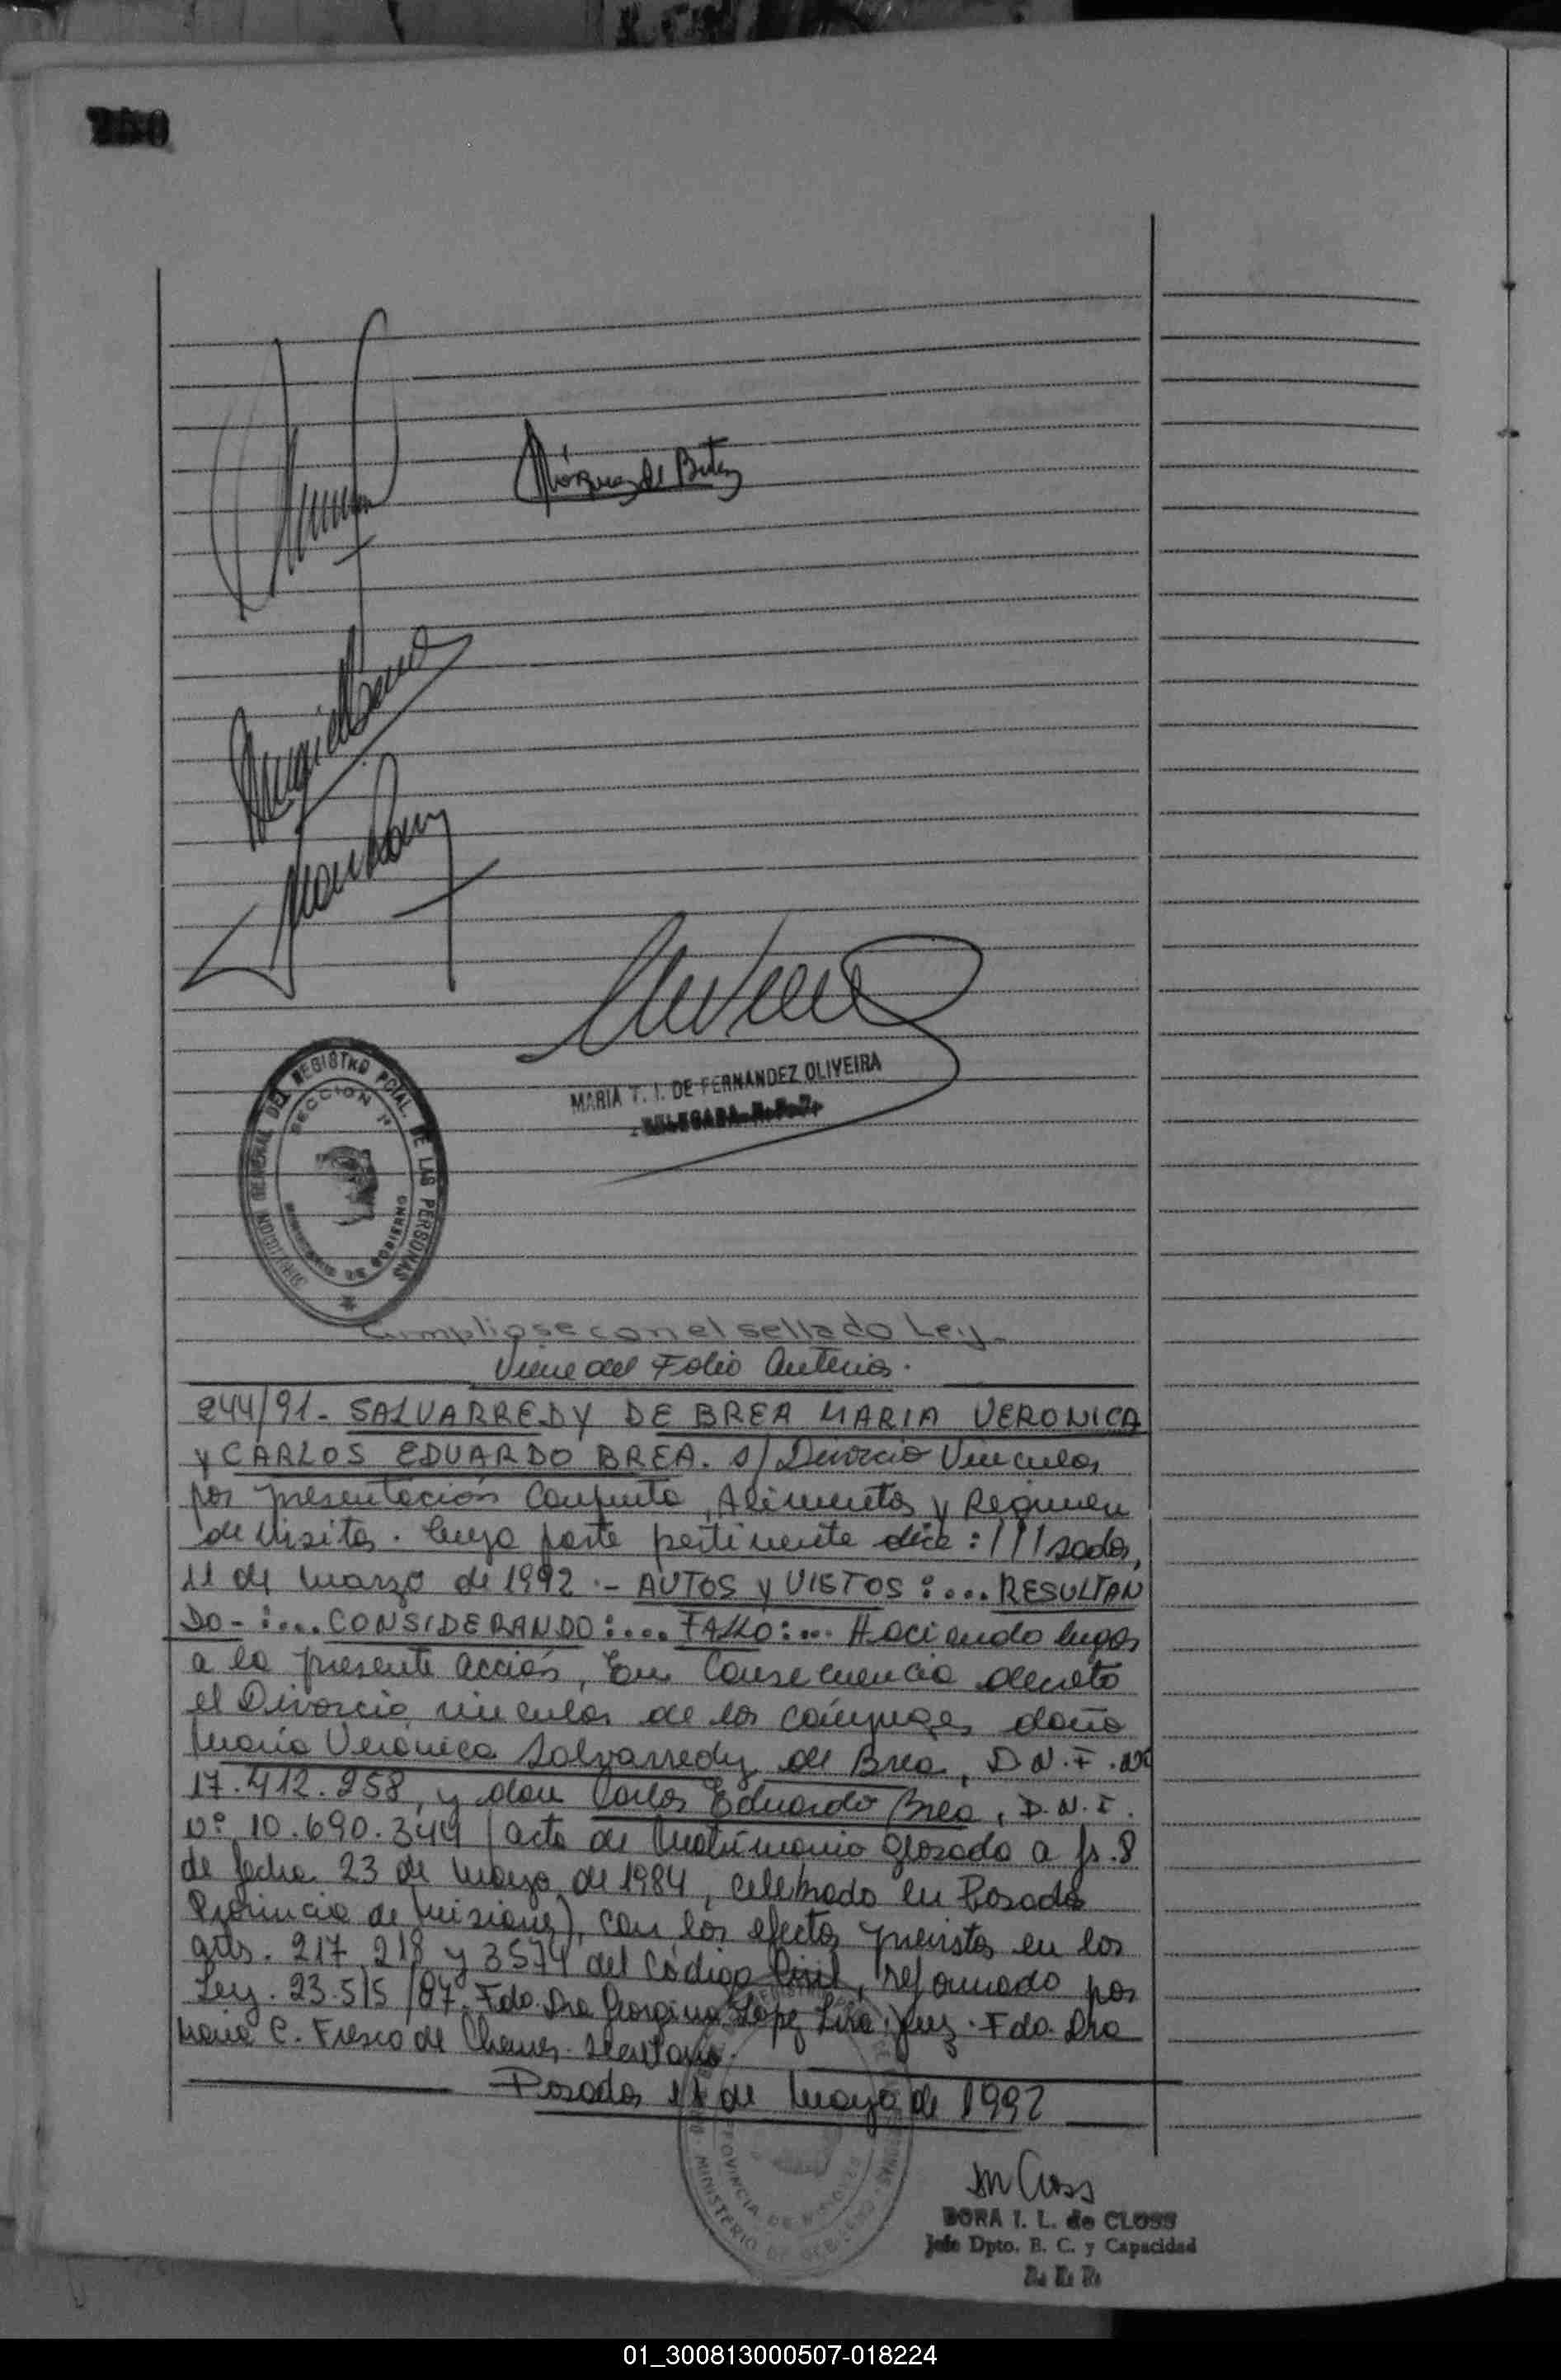 250
Márquez de
MARIA T. I. DE FERNANDEZ OLIVEIRA
DELEGADA R.P.P.
DIRECCION GENERAL DEL REGISTRO PCIAL. DE LAS PERSONAS
SECCION 1ª
MINISTERIO DE GOBIERNO
Cumpliose con el sellado Ley.
Viene del Folio Anterior.
244/91. SALVARREDY DE BREA MARIA VERONICA
y CARLOS EDUARDO BREA. s/ Divorcio Vincular
por presentación Conjunta, Alimentos y Regimen
de Visitas. Cuya parte pertinente dice: ///sadas,
11 de Marzo de 1992.- AUTOS y VISTOS:... RESULTAN
DO-:.... CONSIDERANDO:.... FALLO:... Haciendo lugar
a la presente acción, En Consecuencia decreto
el Divorcio vincular de los cónyuges doña
María Verónica Salvarredy de Brea, D.N.I. Nº
17.412.258, y don Carlos Eduardo Brea, D.N.I.
Nº 10.690.344 (acta de Matrimonio glosada a fs. 8
de fecha 23 de Marzo de 1984, celebrado en Posadas
Provincia de Misiones), con los efectos previstos en los
arts. 217, 218 y 3574 del Código Civil, reformado por
Ley. 23.515/87. Fdo. Dra Georgina López Liva. Juez. Fdo. Dra
María C. Fresco de Secretaria.
Posadas 11 de de 1992
PROVINCIA DE MISIONES
MINISTERIO DE GOBIERNO
DORA I. L. de CLOSS
Jefe Dpto. E. C. y Capacidad
01_300813000507-018224